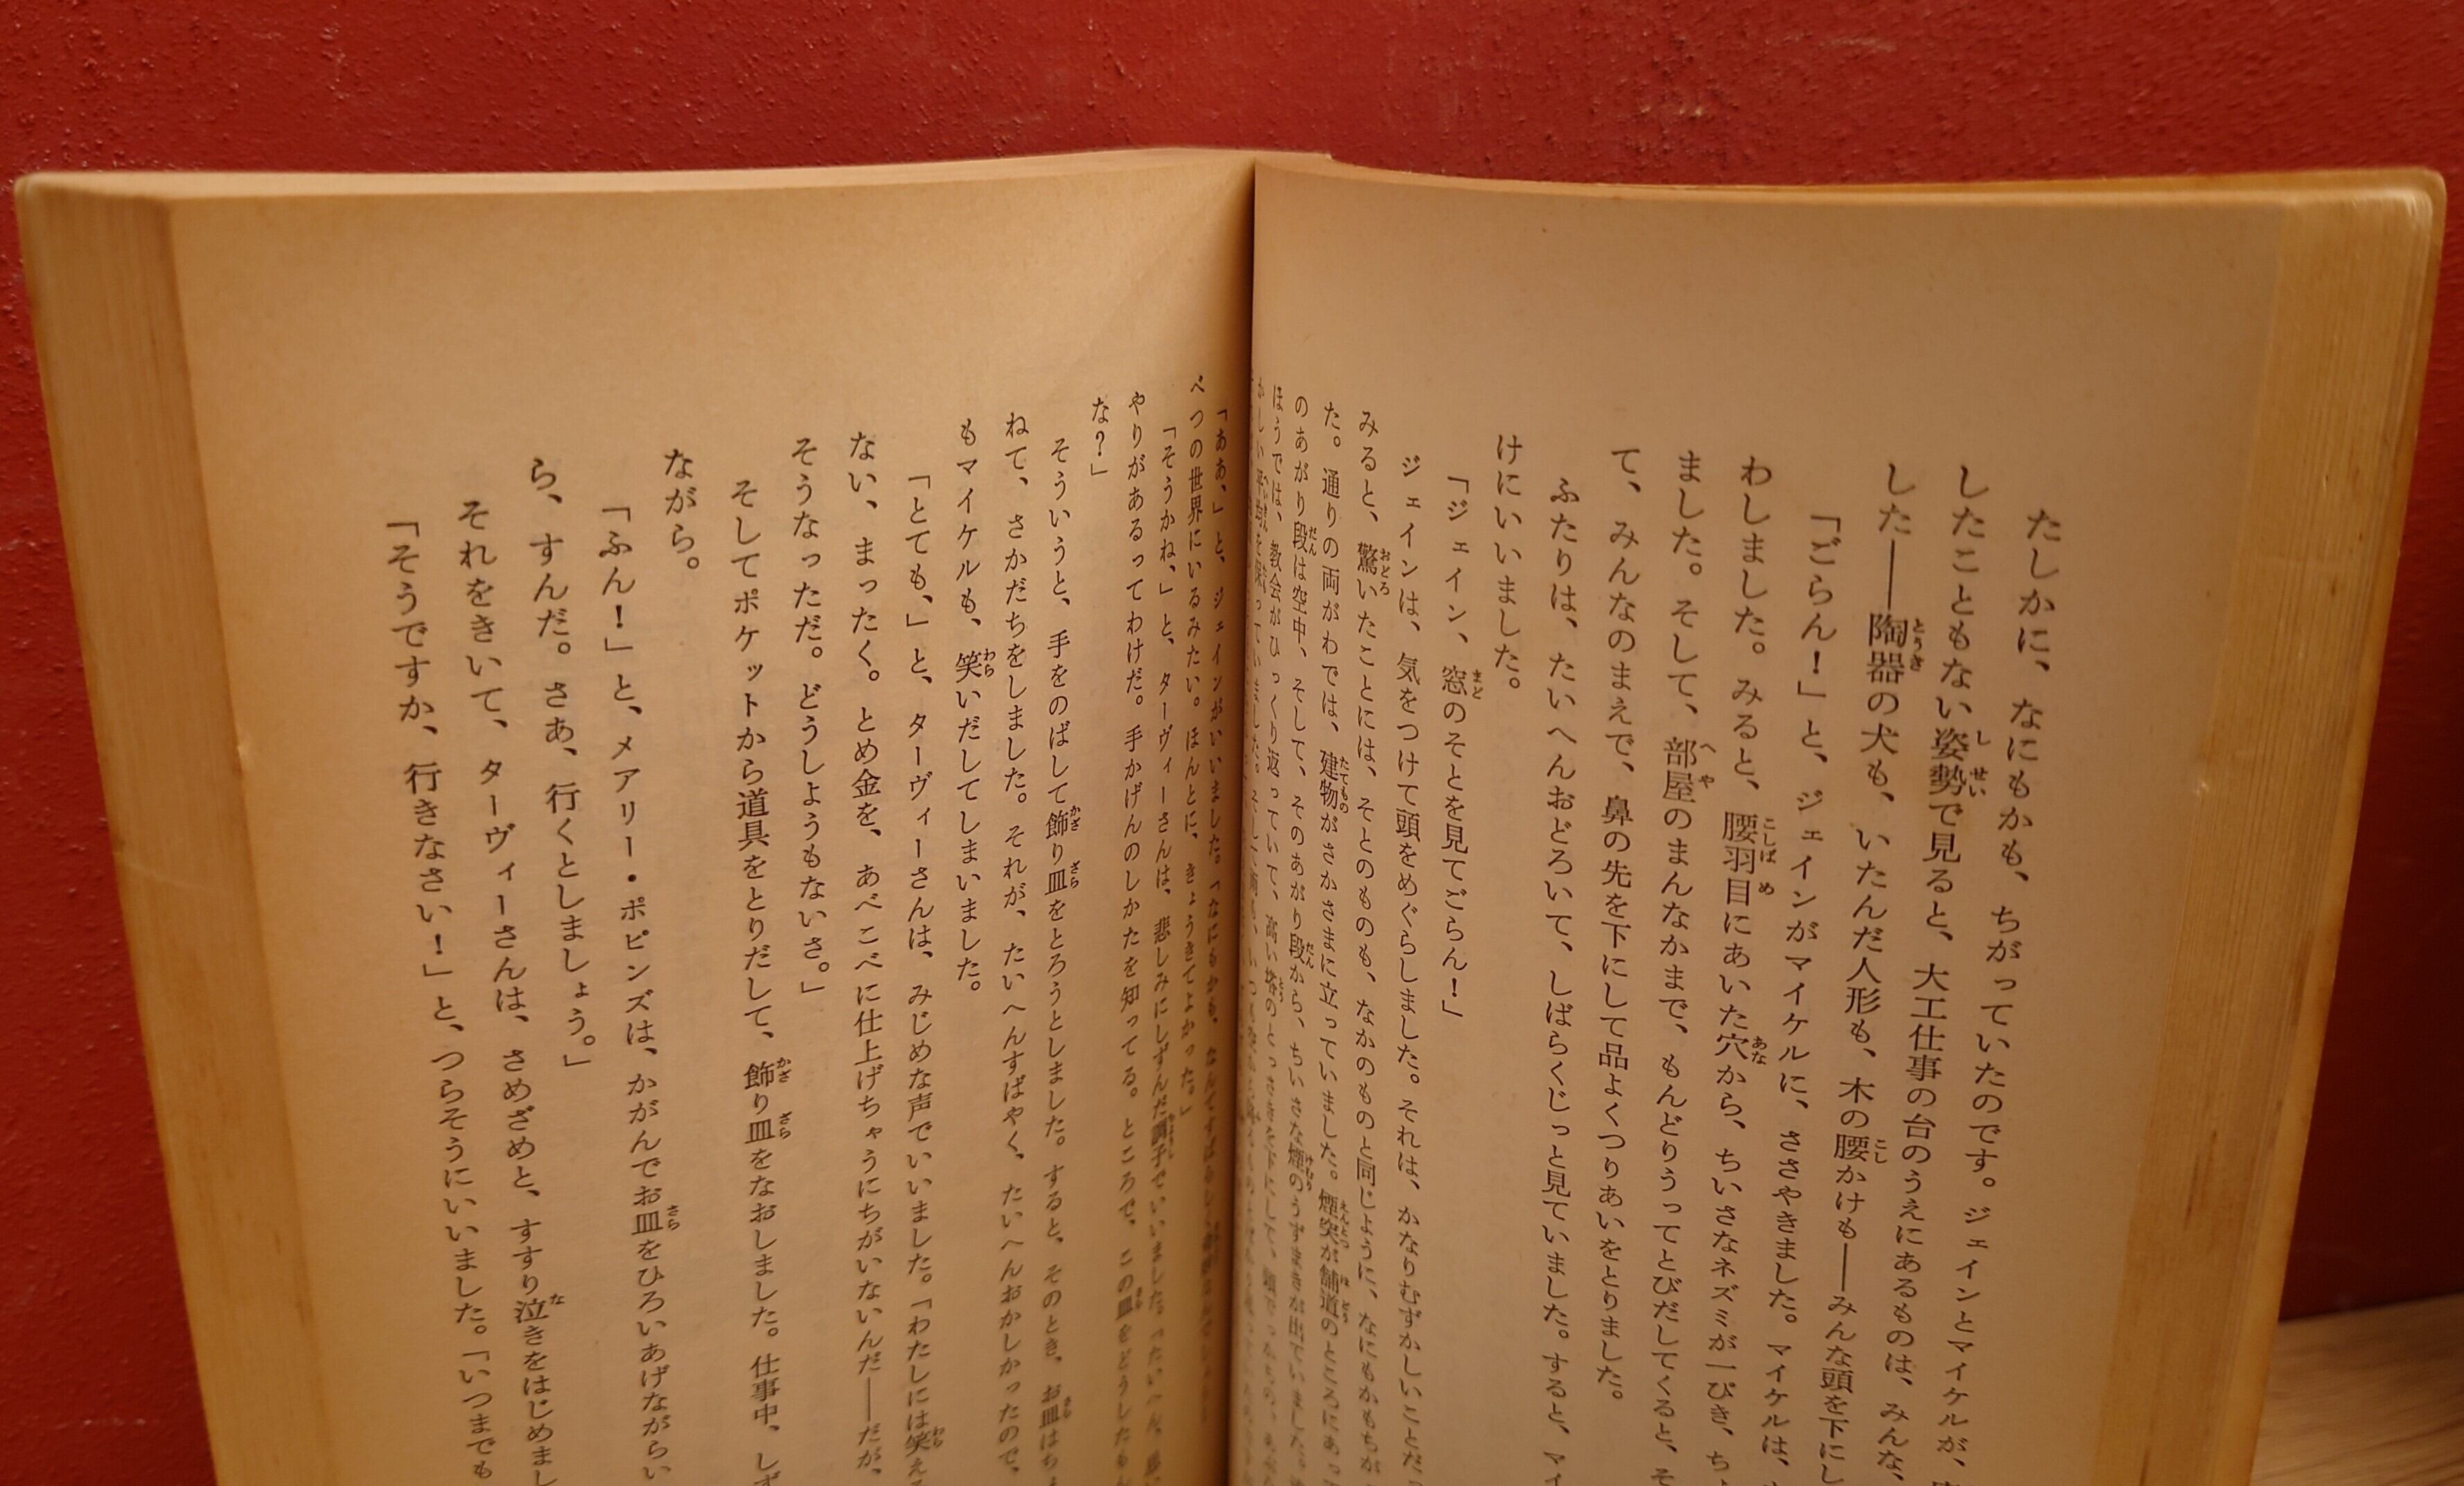 たしかに、なにもかも、ちがっていたのです。ジェインとマイケルが、
したこともない姿勢で見ると、大工仕事の台のうえにあるものは、みんな、
した――陶器の犬も、いたんだ人形も、木の腰かけも――みんな頭を下にし
「ごらん!」と、ジェインがマイケルに、ささやきました。マイケルは、
わしました。みると、腰羽目にあいた穴から、ちいさなネズミが一ぴき、ち
ました。そして、部屋のまんなかまで、もんどりうってとびだしてくると、そ
て、みんなのまえで、鼻の先を下にして品よくつりあいをとりました。
ふたりは、たいへんおどろいて、しばらくじっと見ていました。すると、マイ
けにいいました。
「ジェイン、窓のそとを見てごらん!」
ジェインは、気をつけて頭をめぐらしました。それは、かなりむずかしいことだっ
みると、驚いたことには、そとのものも、なかのものと同じように、なにもかもちが
た。通りの両がわでは、建物がさかさまに立っていました。煙突が舗道のところにあって
のあがり段は空中、そして、そのあがり段から、ちいさな煙のうずまきが出ていました。
ほうでは、教会がひっくり返っていて、高い塔の
「ああ、」と、ジェインがいいました。「なにもかも、なんてすばらしい
べつの世界にいるみたい。ほんとに、きょうきてよかった。」
「そうかね、」と、ターヴィーさんは、悲しみにしずんだ調子でいいました。「たいへん、思い
やりがあるってわけだ。手かげんのしかたを知ってる。ところで、この皿をどうしたもん
な?」
そういうと、手をのばして飾り皿をとろうとしました。すると、そのとき、お皿はちょ
ねて、さかだちをしました。それが、たいへんすばやく、たいへんおかしかったので、
もマイケルも、笑いだしてしまいました。
「とても、」と、ターヴィーさんは、みじめな声でいいました。「わたしには笑え
ない、まったく。とめ金を、あべこべに仕上げちゃうにちがいないんだ――だが、
そうなっただ。どうしようもないさ。」
そしてポケットから道具をとりだして、飾り皿をなおしました。仕事中、しず
ながら。
「ふん!」と、メアリー・ポピンズは、かがんでお皿をひろいあげながらい
ら、すんだ。さあ、行くとしましょう。」
それをきいて、ターヴィーさんは、さめざめと、すすり泣きをはじめまし
「そうですか、行きなさい!」と、つらそうにいいました。「いつまでも